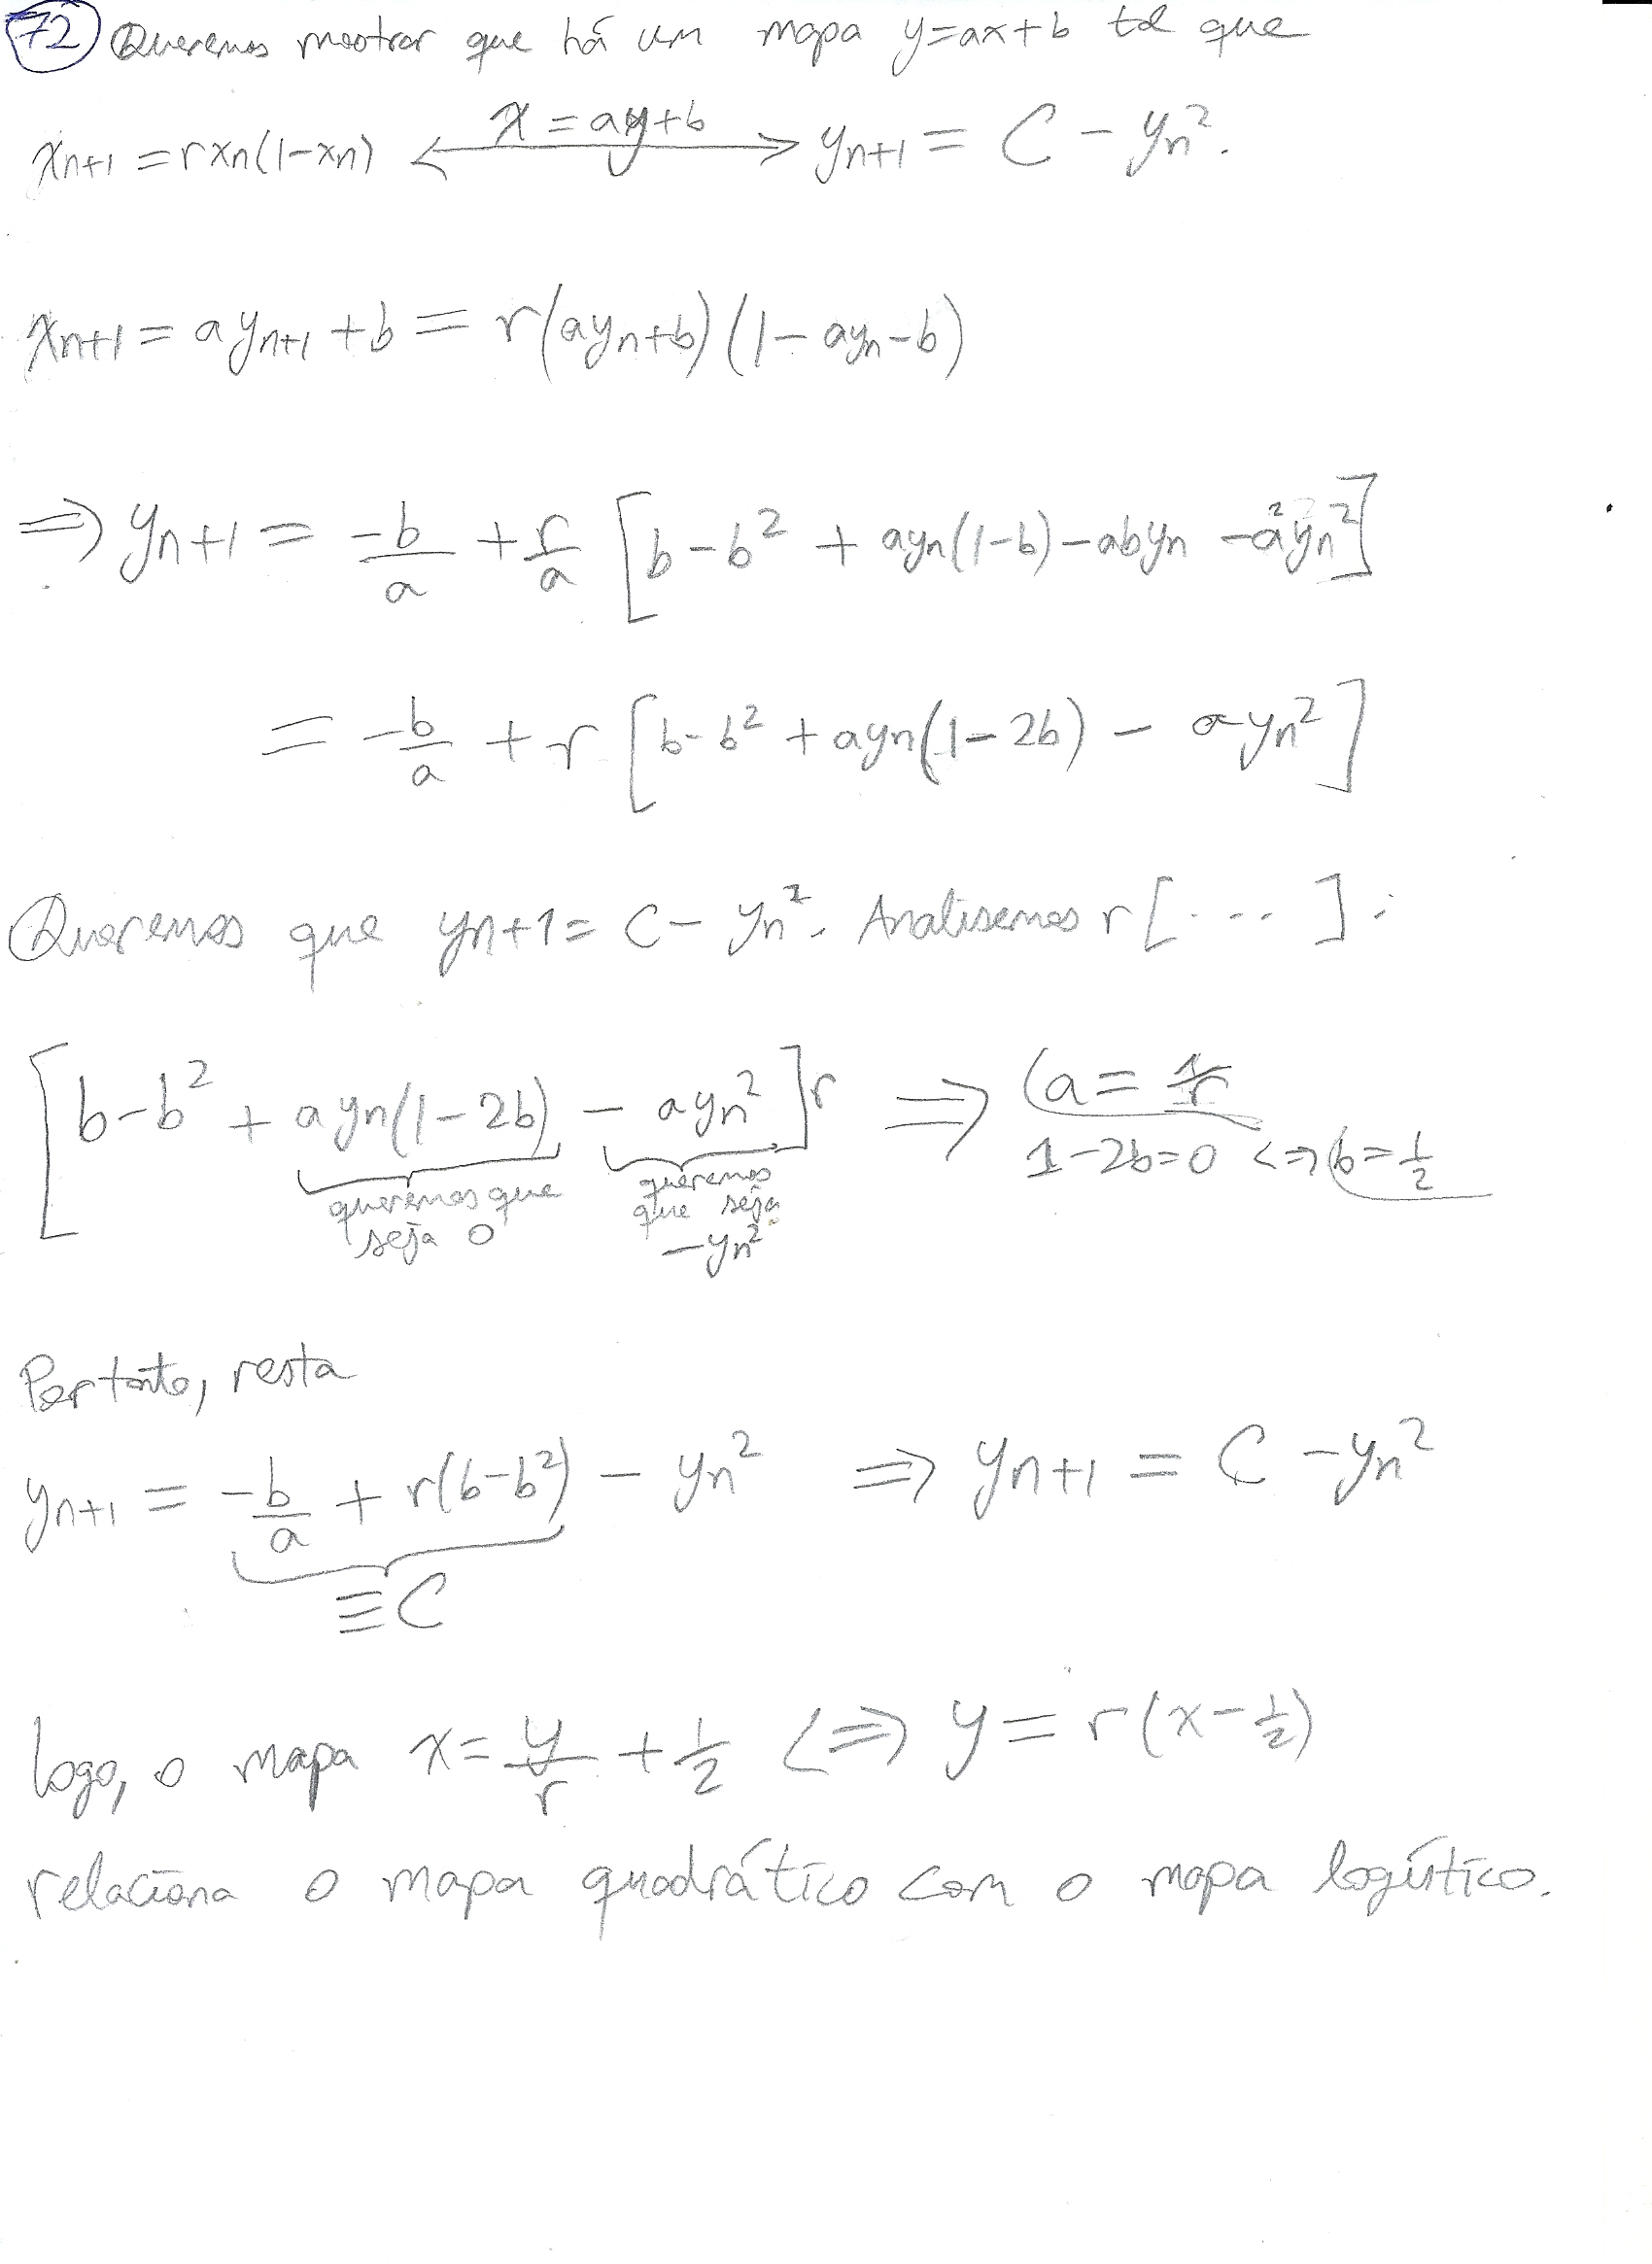 72 Queremos mostrar que há um mapa y=ax+b tal que
xn+1 = rxn(1-xn) <—— x = ay+b ——> yn+1 = C - yn².
xn+1 = ayn+1 + b = r(ayn+b)(1-ayn-b)
⇒ yn+1 = -b/a + r/a [b-b² + ayn(1-b) - abyn - a²yn²]
= -b/a + r [b-b² + ayn(1-2b) - ayn²]
Queremos que yn+1 = C - yn². Analisemos r[...]:
[b-b² + ayn(1-2b) - ayn²]r ⇒ a = 1/r
1-2b=0 <=> b=1/2
queremos que seja 0
queremos que seja -yn²
Portanto, resta
yn+1 = -b/a + r(b-b²) - yn² ⇒ yn+1 = C - yn²
≡ C
Logo, o mapa x = y/r + 1/2 <=> y = r(x-1/2)
relaciona o mapa quadrático com o mapa logístico.